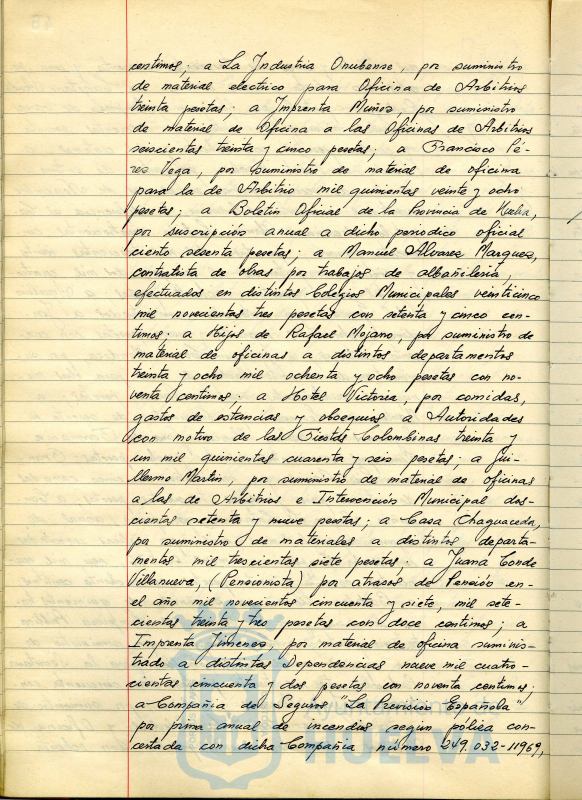 centimos; a La Industria Onubense, por suministro
de material electrico para Oficina de Arbitrios
treinta pesetas; a Imprenta Muñoz, por suministro
de material de Oficina a las Oficinas de Arbitrios
seiscientas treinta y cinco pesetas; a Francisco Pé-
rez Vega, por suministro de material de oficina
para la de Arbitrio mil quinientas veinte y ocho
pesetas; a Boletin Oficial de la Provincia de Huelva,
por suscripción anual a dicho periodico oficial
ciento sesenta pesetas; a Manuel Alvarez Marquez,
contratista de obras por trabajos de albañileria,
efectuados en distintos Colegios Municipales veinticinco
mil novecientas tres pesetas con setenta y cinco cen-
timos; a Hijos de Rafael Mojano, por suministro de
material de oficinas a distintos departamentos
treinta y ocho mil ochenta y ocho pesetas con no-
venta centimos; a Hotel Victoria, por comidas,
gastos de estancias y obsequios a Autoridades
con motivo de las Fiestas Colombinas treinta y
un mil quinientas cuarenta y seis pesetas; a Gui-
llermo Martin, por suministro de material de oficinas
a las de Arbitrios e Intervención Municipal dos-
cientas setenta y nueve pesetas; a Casa Chaguaceda,
por suministro de materiales a distintos departa-
mentos mil trescientas siete pesetas; a Juana Conde
Villanueva, (Pensionista) por atrasos de Pensión en-
el año mil novecientos cincuenta y siete, mil sete-
cientas treinta y tres pesetas con doce centimos; a
Imprenta Jimenez, por material de oficina suminis-
trado a distintas Dependencias nueve mil cuatro-
cientas cincuenta y dos pesetas con noventa centimos;
a Compañia de Seguros "La Prevision Española"
por prima anual de incendios segun póliza con-
certada con dicha Compañia número 249.032-11969,
HUELVA